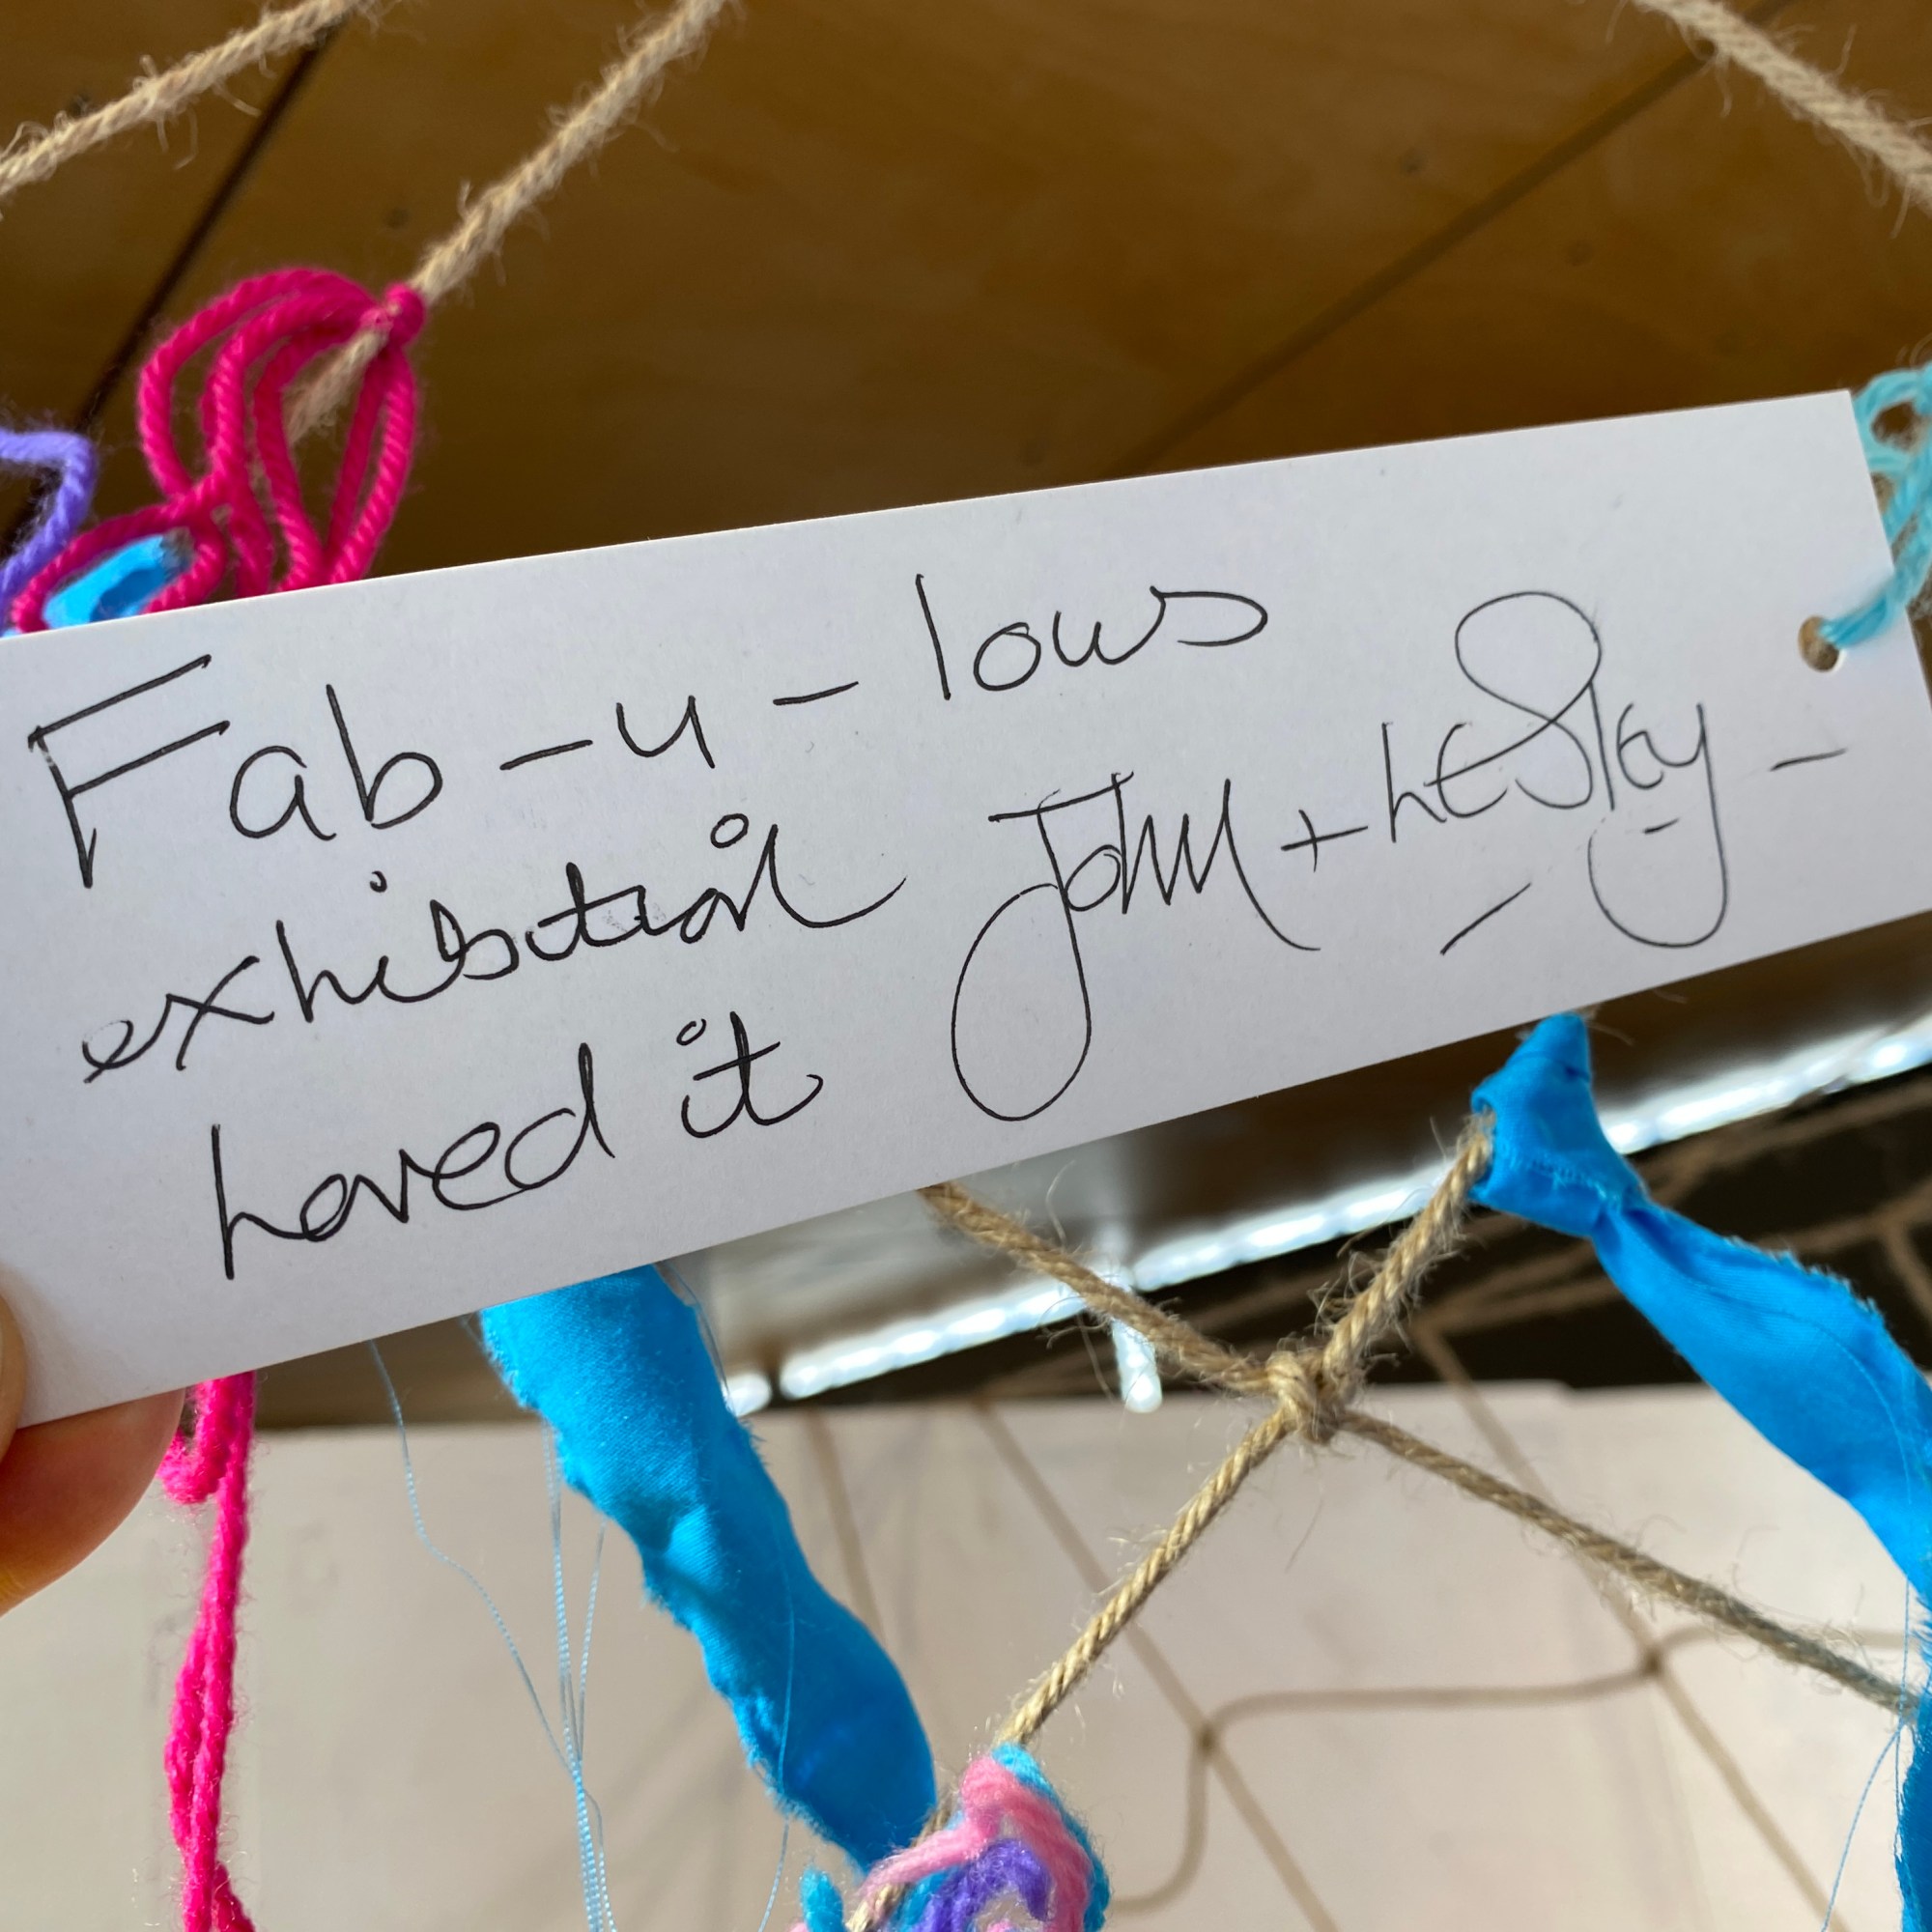 Fab-u-lous
exhibition
Loved it
John + Lesley -